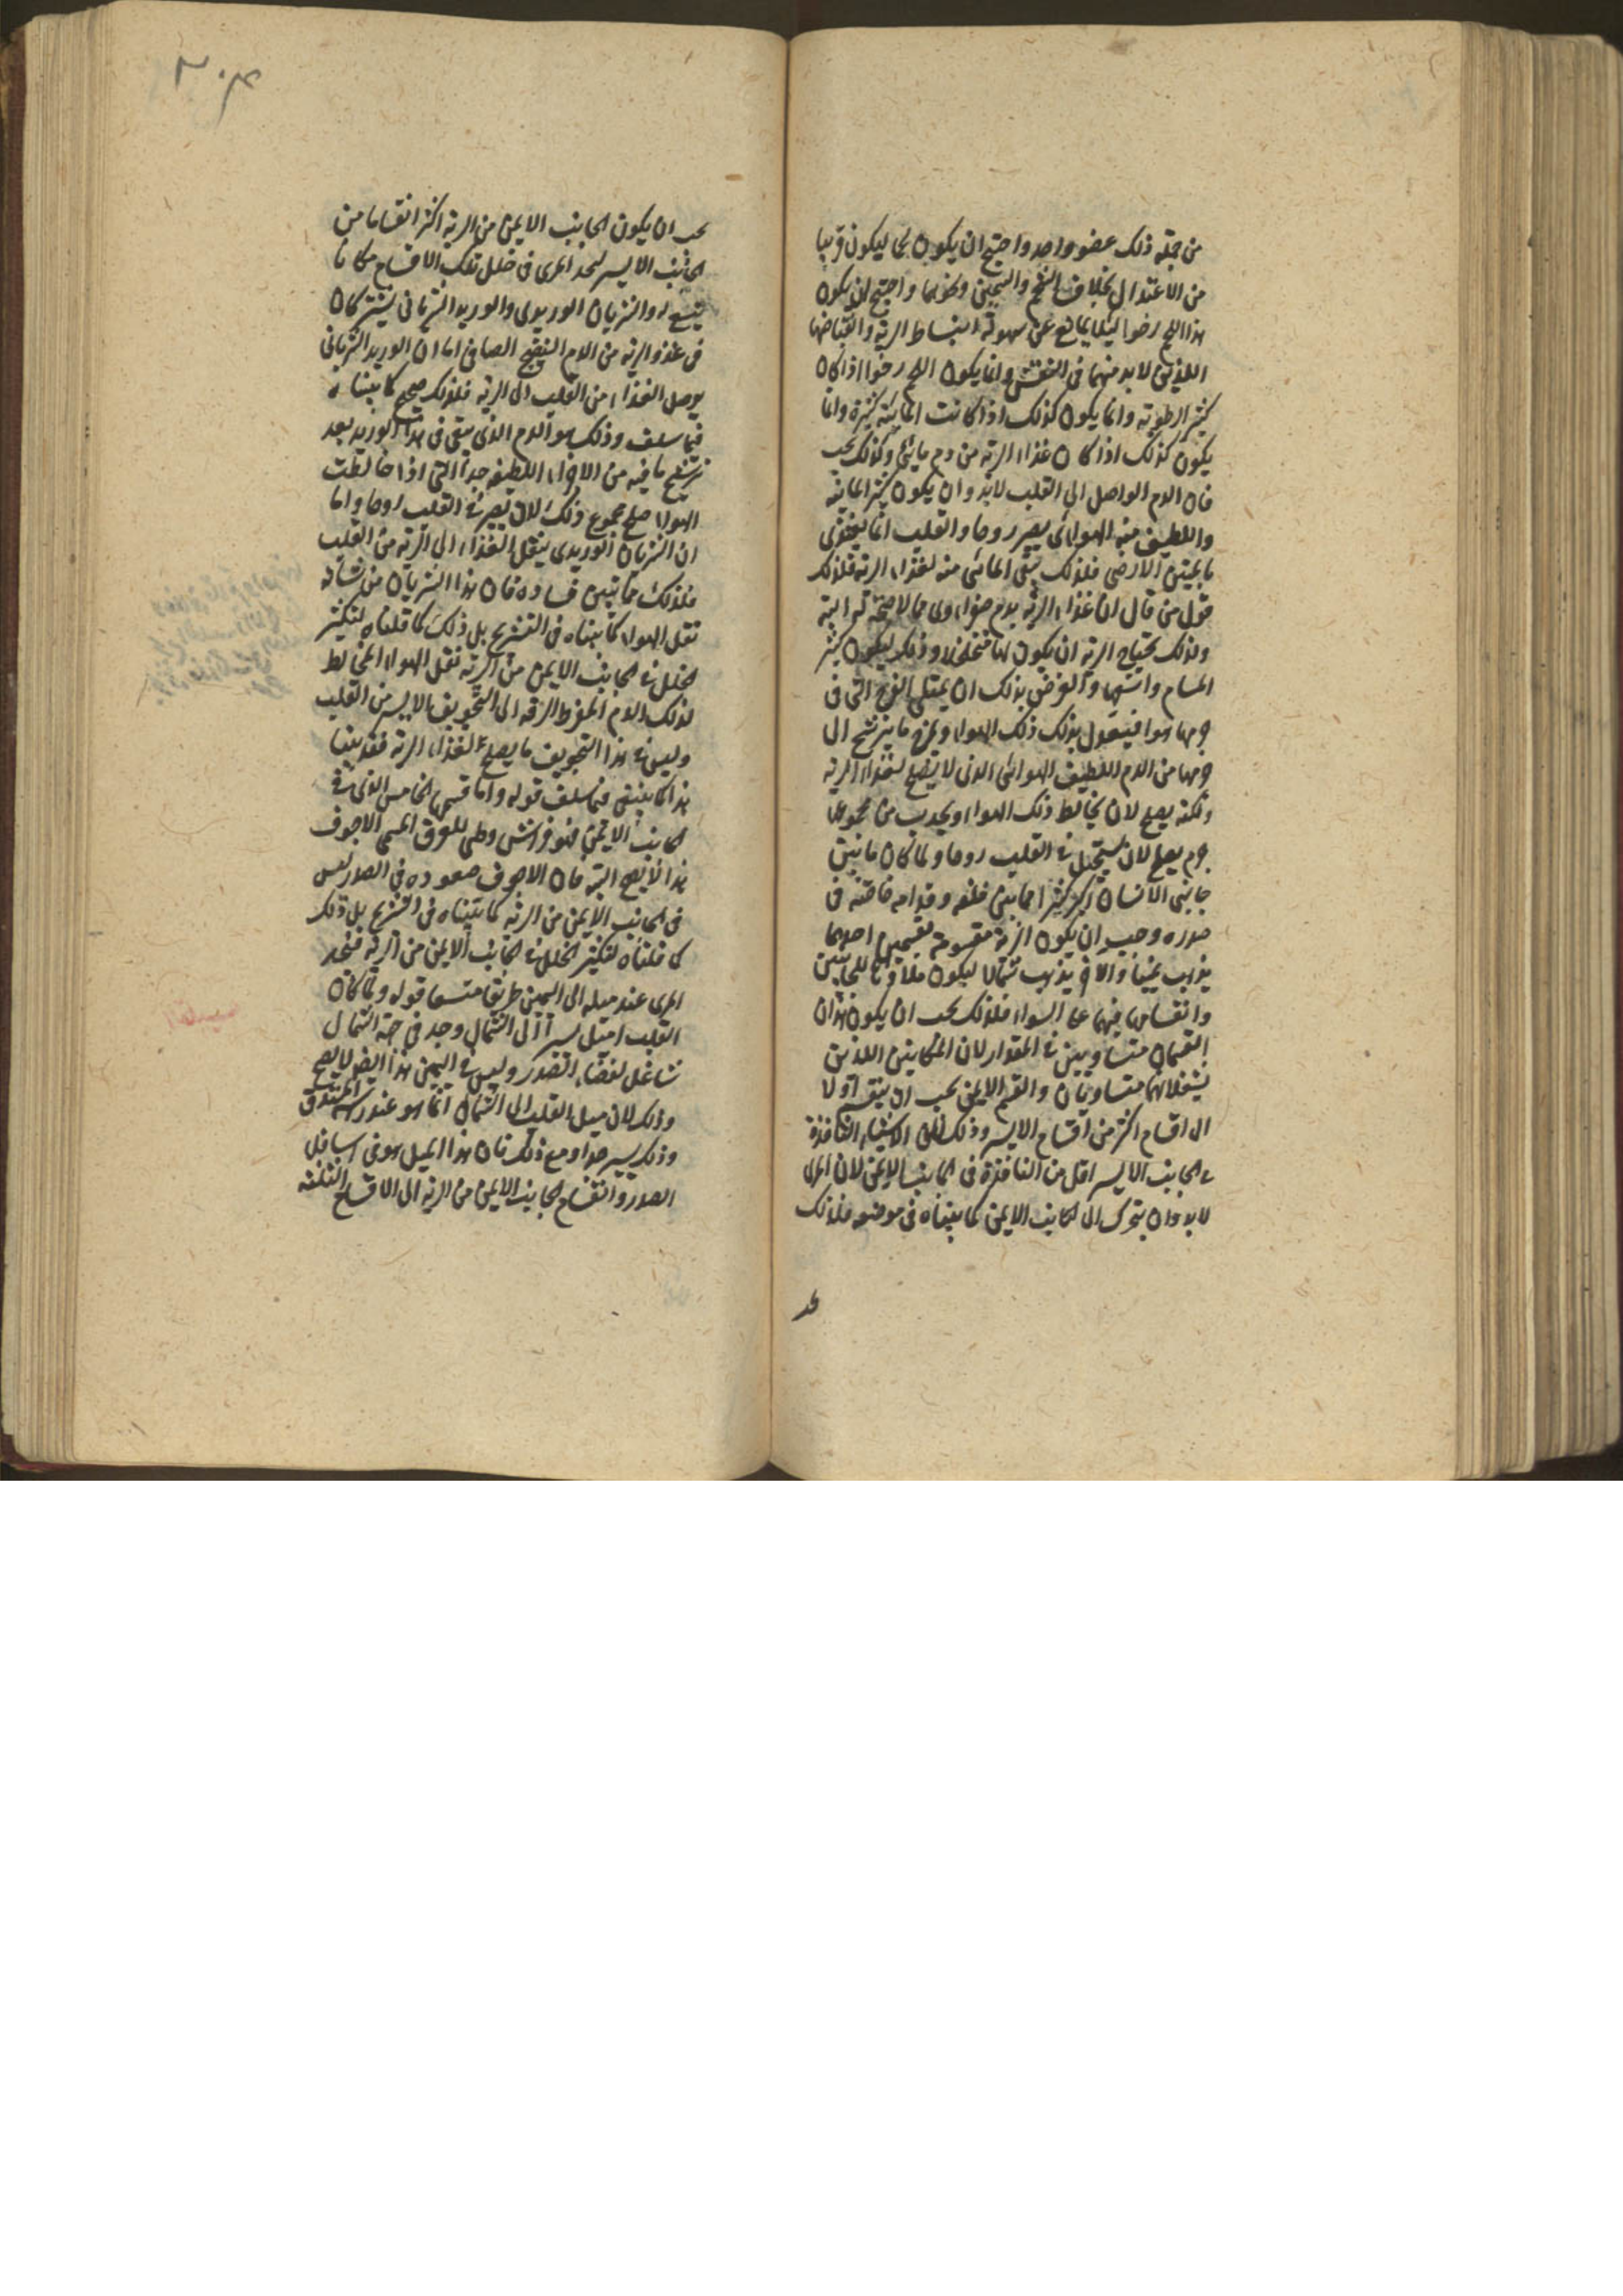 من جملة ذلك عضو واحد واحتيج ان يكون لحما ليكون قريبا
من الاعتدال بخلاف الشحم والسمين ونحوهما واحتيج ان يكون
هذا اللحم رخوا لئلا يمانع عن سهولة انبساط الرية وانقباضها
اللذين لا بد منهما في التنفس وانما يكون اللحم رخوا اذا كان
كثير الرطوبة وانما يكون كذلك اذا كانت المائية كثيرة وانما
يكون كذلك اذا كان غذاء الرية من دم مائي وكذلك يجب
فان الدم الواصل الى القلب لابد وان يكون كثير المائية
واللطيف منه الهوائي يصير روحا والقلب انما يغتذي
بالمتين الارضي فلذلك يبقى المائي منه لغذاء الرية فلذلك
قول من قال ان غذاء الرية بدم صفراوي مما لا صحة له البتة
ولذلك تحتاج الرية ان يكون لها متخلخلا وذلك ليكون كثير
المسام واسعها والغرض بذلك ان يمتلى الفرج التي في
جرمها هوا فيتعدل بذلك ذلك الهواء ويمزج ما يترشح الى
جرمها من الدم اللطيف الهوائي الذي لا يصلح لغذاء الرية
ولكنه يصلح لان يخالط ذلك الهواء ويحدث من مجموعهما
جرم يصلح لان يستحيل في القلب روحا ولما كان ما بين
جانبي الانسان اكبر كثيرا مما بين خلفه وقدامه خاصة في
صدره وجب ان يكون الرية مقسومة بقسمين احدهما
يذهب يمينا والاخر يذهب شمالا ليكون ملاؤها للجانبين
وانقسامها فيهما على السواء فلذلك يجب ان يكون هذان
القسمان متساويين في المقدار لان المكانين اللذين
يشغلانهما متساويان والقسم الايمن يجب ان ينقسم اولا
الى اقسام اكثر من اقسام الايسر وذلك لان الاشياء النافذة
في الجانب الايسر اقل من النافذة في الجانب الايمن لان المرى
لابد وان يتحرك الى الجانب الايمن كما بيناه في موضعه فلذلك
يجب ان يكون الجانب الايمن من الرية اكثر انقساما من
الجانب الايسر ليجد المرى في خلل تلك الاقسام مكانا
يتسع له والشريان الوريدي والوريد الشرياني يشتركان
في غذو الرية من الدم النضيج الصافي اما ان الوريد الشرياني
يوصل الغذاء من القلب الى الرية فلذلك صحيح كما بيناه
فيما سلف وذلك هو الدم الذي يبقى في هذا الوريد بعد
ترشح ما فيه من الاجزاء اللطيفة جدا التي اذا خالطت
الهواء صلح مجموع ذلك لان يصير في القلب روحا واما
ان الشريان الوريدي ينقل الغذاء الى الرية من القلب
فلذلك مما تبين فساده فان هذا الشريان من شأنه
نقل الهواء كما بيناه في التشريح بل ذلك كما قلناه لتكثير
الخلل في الجانب الايمن من الرية نقل الهواء المخالط
لذلك الدم المفرط الرقة الى التجويف الايسر من القلب
وليس في هذا التجويف ما يصلح لغذاء الرية فقد بينا
هذا كما ينبغي فيما سلف قوله واما قسمها الخامس الذي في
الجانب الايمن فهو فراش وطي للعرق المسمى الاجوف
هذا لا يصح البتة فان الاجوف صعوده في الصدر ليس
في الجانب الايمن من الرية كما بيناه في التشريح بل ذلك
كما قلناه لتكثير الخلل في الجانب الايمن من الرية فيجد
المرى عند ميله الى اليمين طريقا متسعا قوله ولما كان
القلب اميل يسيرا الى الشمال وجد في جهة الشمال
شاغل لفضاء الصدر وليس في اليمين هذا ايضا لا يصح
وذلك لان ميل القلب الى الشمال انما هو عند راسه المستدق
وذلك يسير جدا ومع ذلك فان هذا الميل هو في اسافل
الصدر وانقسام الجانب الايمن من الرية الى الاقسام الثلثة